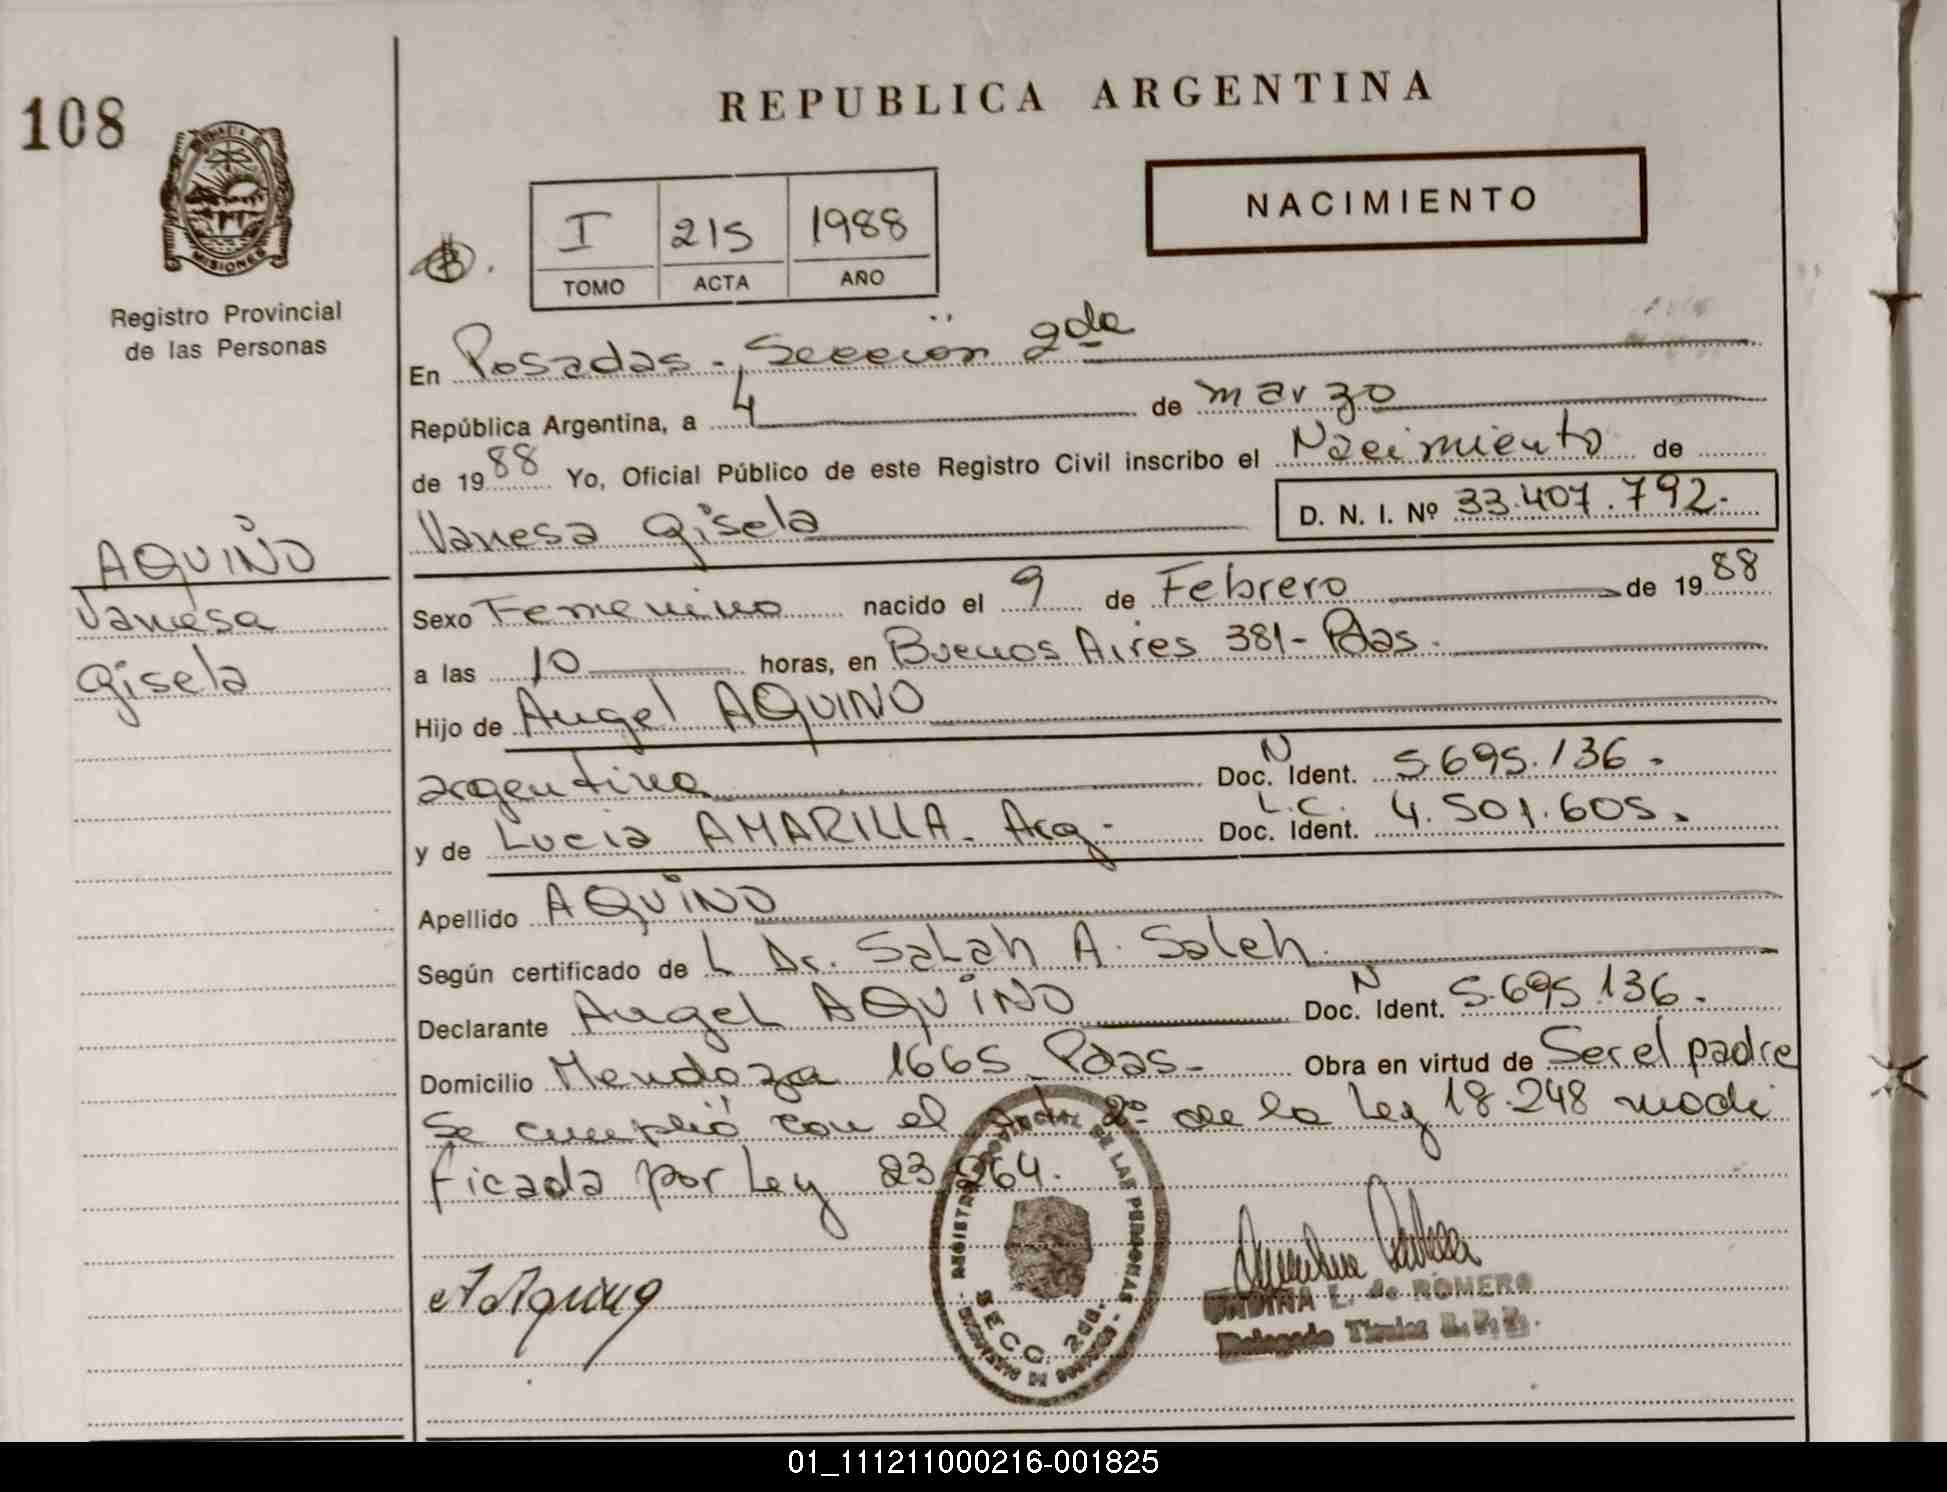 108
REPUBLICA ARGENTINA
NACIMIENTO
I 215 1988
TOMO ACTA AÑO
MISIONES
Registro Provincial
de las Personas
En Posadas - Sección 2da
República Argentina, a 4 de marzo
de 1988 Yo, Oficial Público de este Registro Civil inscribo el Nacimiento de
Vanesa Gisela D. N. I. Nº 33.407.792.
AQUINO
Vanesa
Gisela
Sexo Femenino nacido el 9 de Febrero de 1988
a las 10 horas, en Buenos Aires 381 - Pdas.
Hijo de Angel AQUINO
N
argentino Doc. Ident. 5.695.136.
L.C.
y de Lucia AMARILLA - Arg. Doc. Ident. 4.501.605.
Apellido AQUINO
Según certificado de L Dr. Salah A. Saleh.
N
Declarante Angel AQUINO Doc. Ident. 5.695.136.
Domicilio Mendoza 1665 - Pdas - Obra en virtud de Ser el padre
Se cumplió con el art. 2º de la Ley 18.248 modi
ficada por Ley 23.264.
SECC. 2da.
A Aquino
L. de ROMERO
Delegado Titular R.P.P.
01_111211000216-001825